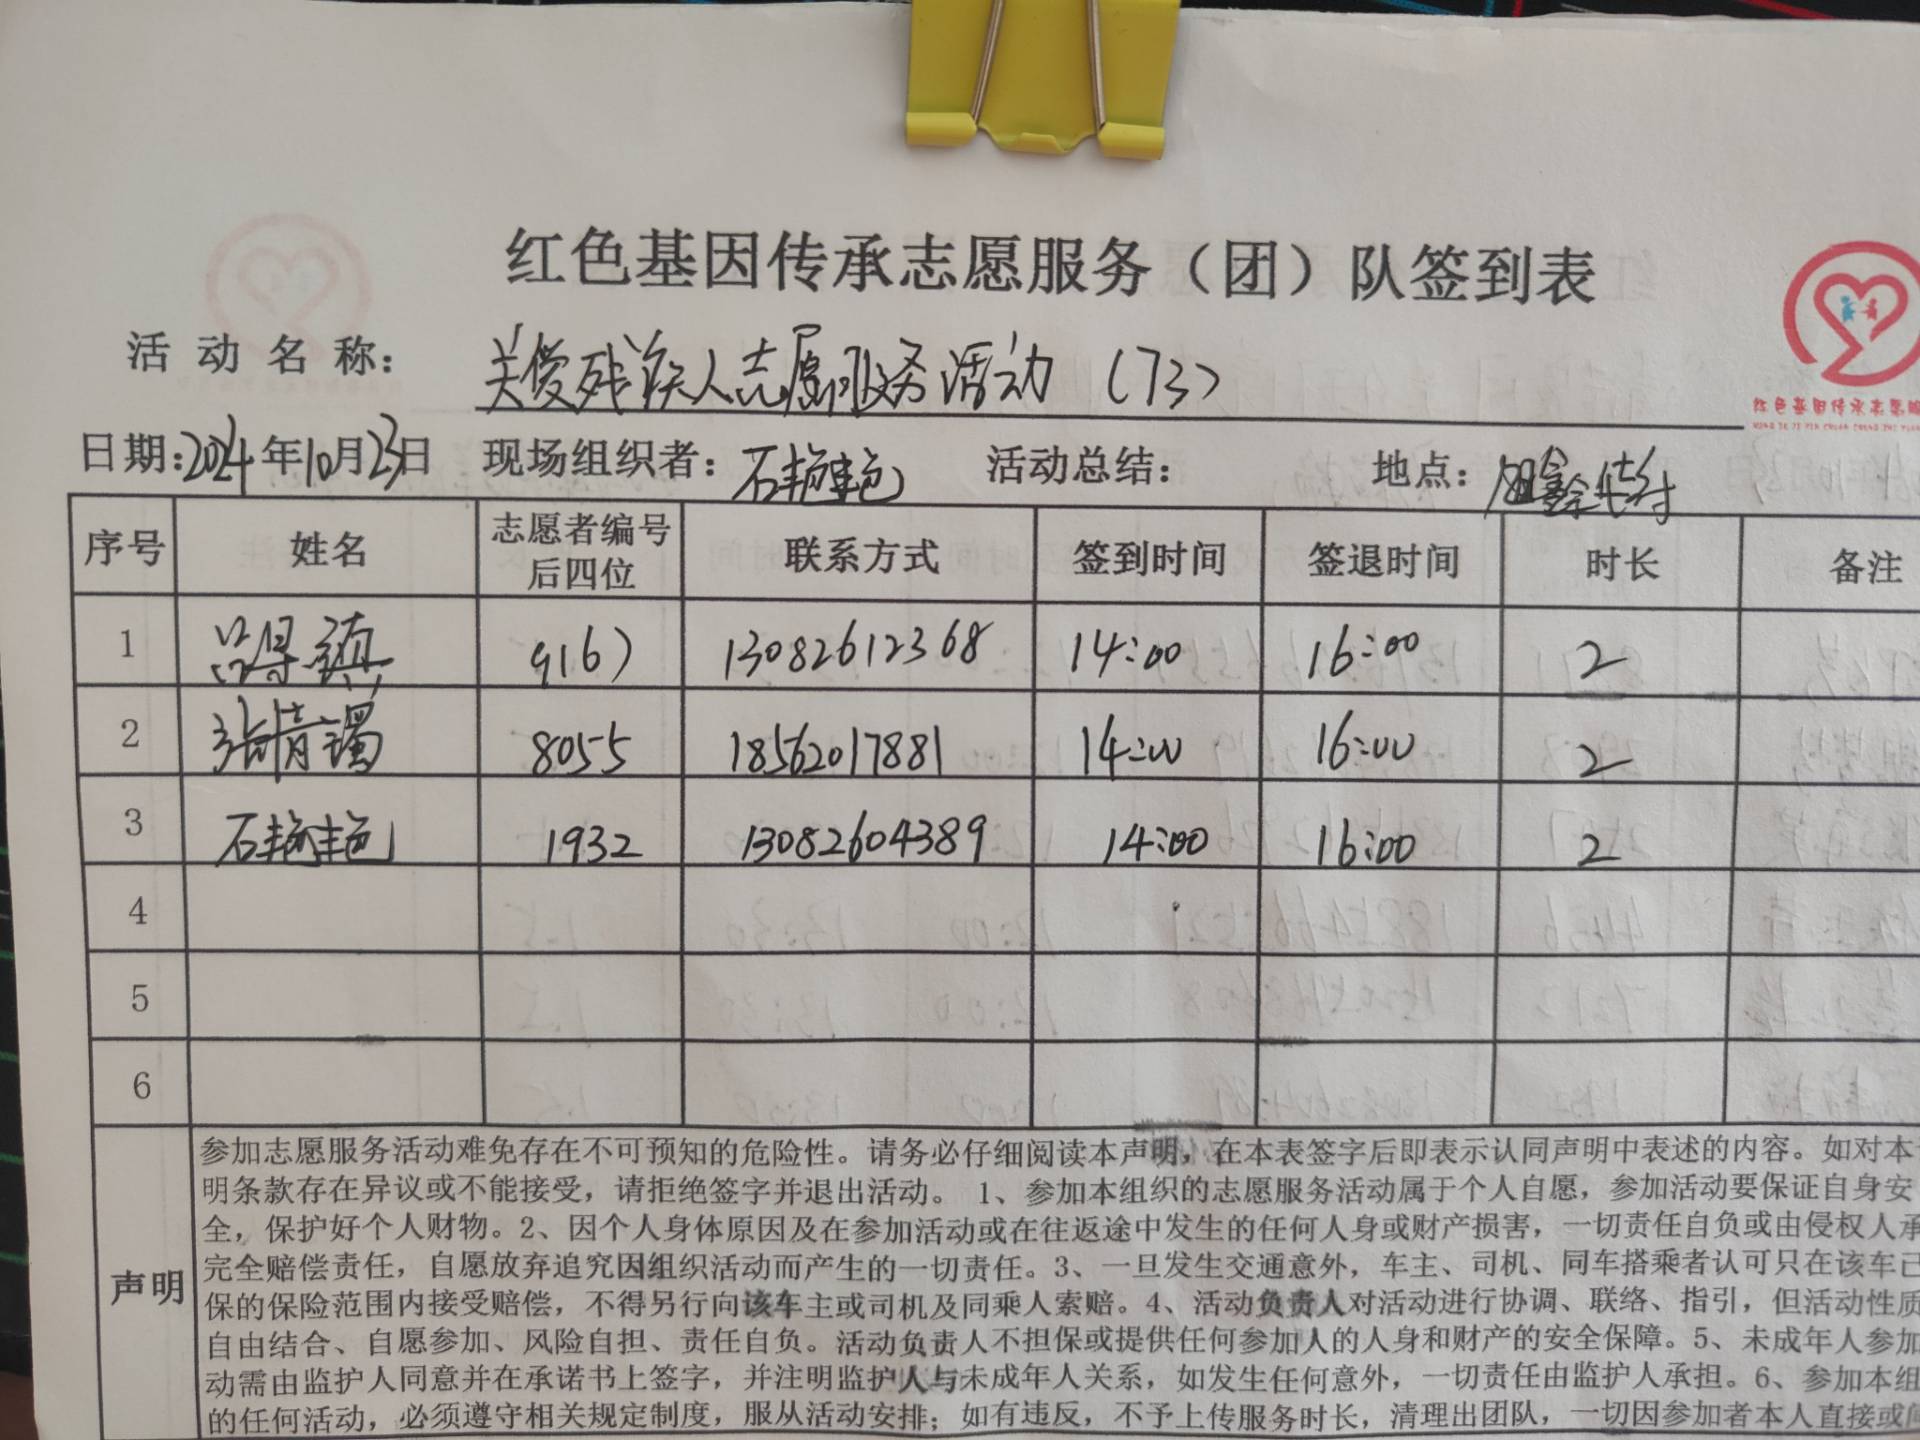 红色基因传承志愿服务（团）队签到表
活动名称： 关爱残疾人志愿服务活动（73）
日期：2024年10月23日 现场组织者：石艳艳 活动总结： 地点：
序号 姓名 志愿者编号后四位 联系方式 签到时间 签退时间 时长 备注
1 吕得镇 9167 13082612368 14:00 16:00 2
2 张靖 8055 18562017881 14:00 16:00 2
3 石艳艳 1932 13082604389 14:00 16:00 2
4
5
6
声明
参加志愿服务活动难免存在不可预知的危险性。请务必仔细阅读本声明，在本表签字后即表示认同声明中表述的内容。如对本
明条款存在异议或不能接受，请拒绝签字并退出活动。 1、参加本组织的志愿服务活动属于个人自愿，参加活动要保证自身安
全，保护好个人财物。2、因个人身体原因及在参加活动或在往返途中发生的任何人身或财产损害，一切责任自负或由侵权人承
完全赔偿责任，自愿放弃追究因组织活动而产生的一切责任。3、一旦发生交通意外，车主、司机、同车搭乘者认可只在该车已
保的保险范围内接受赔偿，不得另行向该车主或司机及同乘人索赔。4、活动负责人对活动进行协调、联络、指引，但活动性质
自由结合、自愿参加、风险自担、责任自负。活动负责人不担保或提供任何参加人的人身和财产的安全保障。5、未成年人参加
动需由监护人同意并在承诺书上签字，并注明监护人与未成年人关系，如发生任何意外，一切责任由监护人承担。6、参加本组
的任何活动，必须遵守相关规定制度，服从活动安排；如有违反，不予上传服务时长，清理出团队，一切因参加者本人直接或间
红色基因传承志愿服